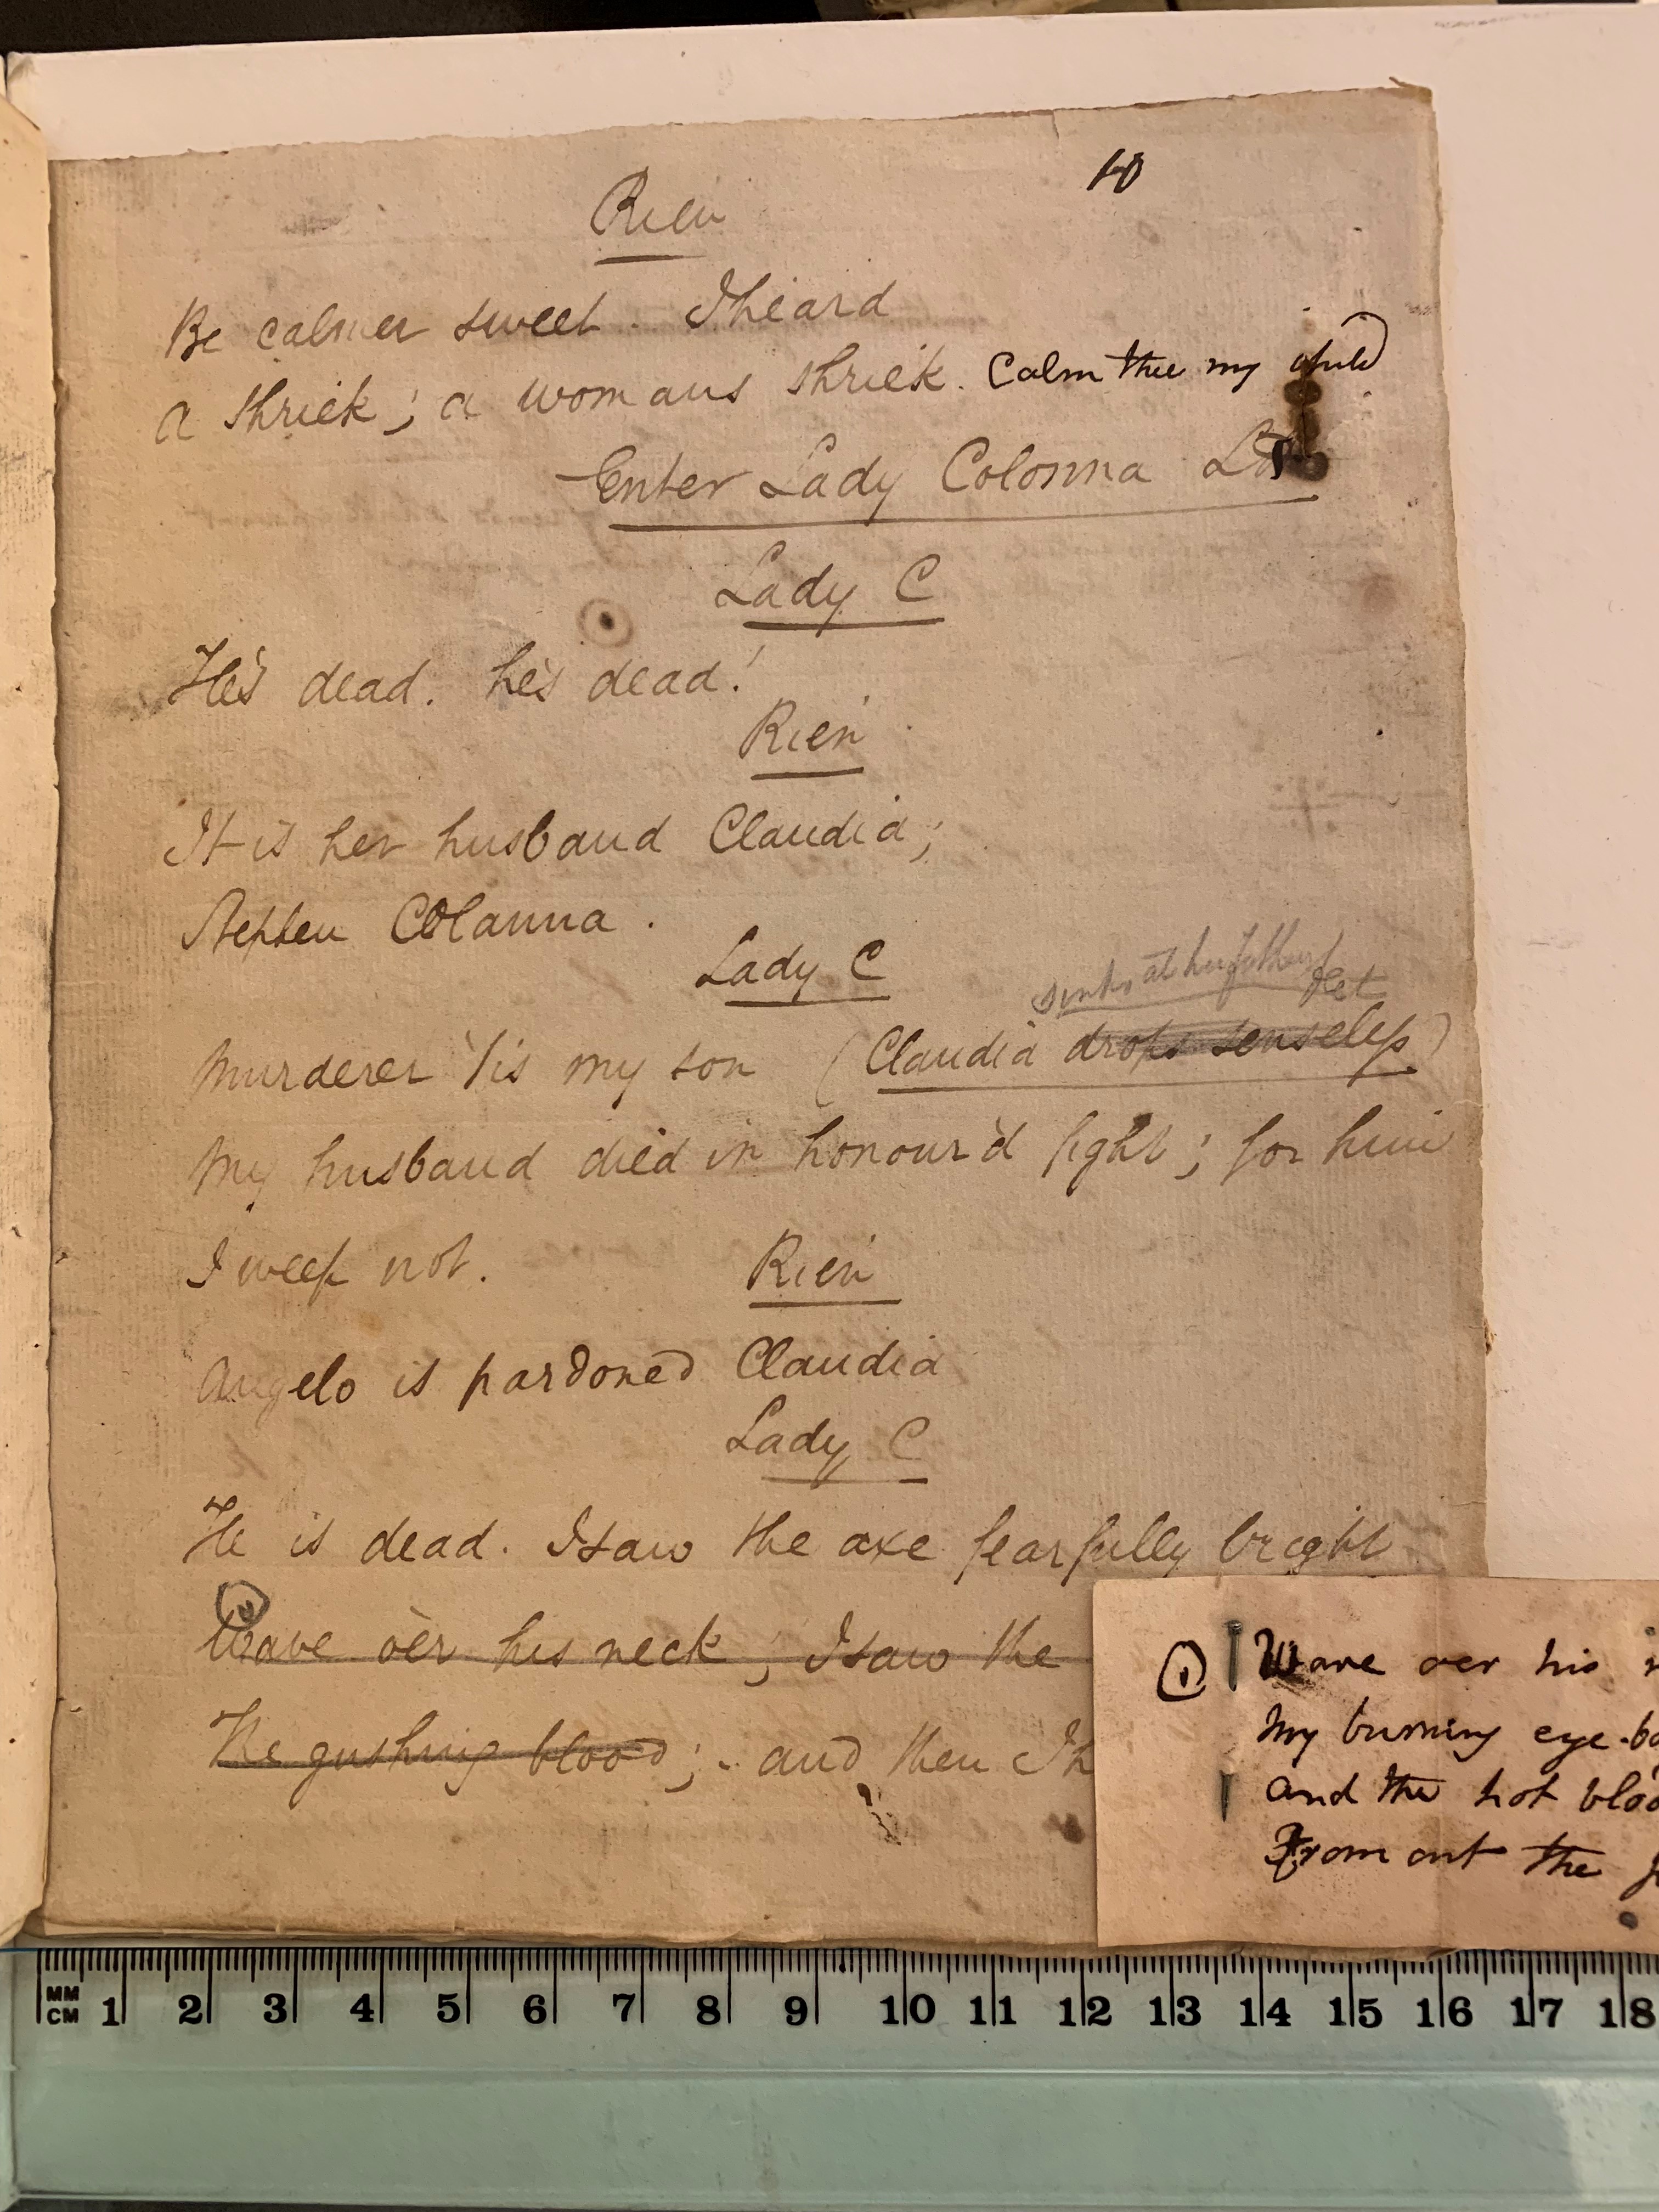 10
Rien
Be calmer sweet. I heard
a shriek; a womans shriek. Calm thee my child
Enter Lady Colonna
Lady C
He's dead. he's dead!
Rien
It is her husband Claudia;
Stephen Colanna.
Lady C
sinks at her father's
feet
Murderer 'tis my son (Claudia drops senseless)
My husband died in honour'd fight; for him
I weep not.
Rien
Angelo is pardoned Claudia
Lady C
He is dead. I saw the axe fearfully bright
Wave o'er his neck; I saw the
The gushing blood; and then I h
1 Wave oer his
My burning eye-ba
and the hot bloo
From out the
MM
CM 1 2 3 4 5 6 7 8 9 10 11 12 13 14 15 16 17 18